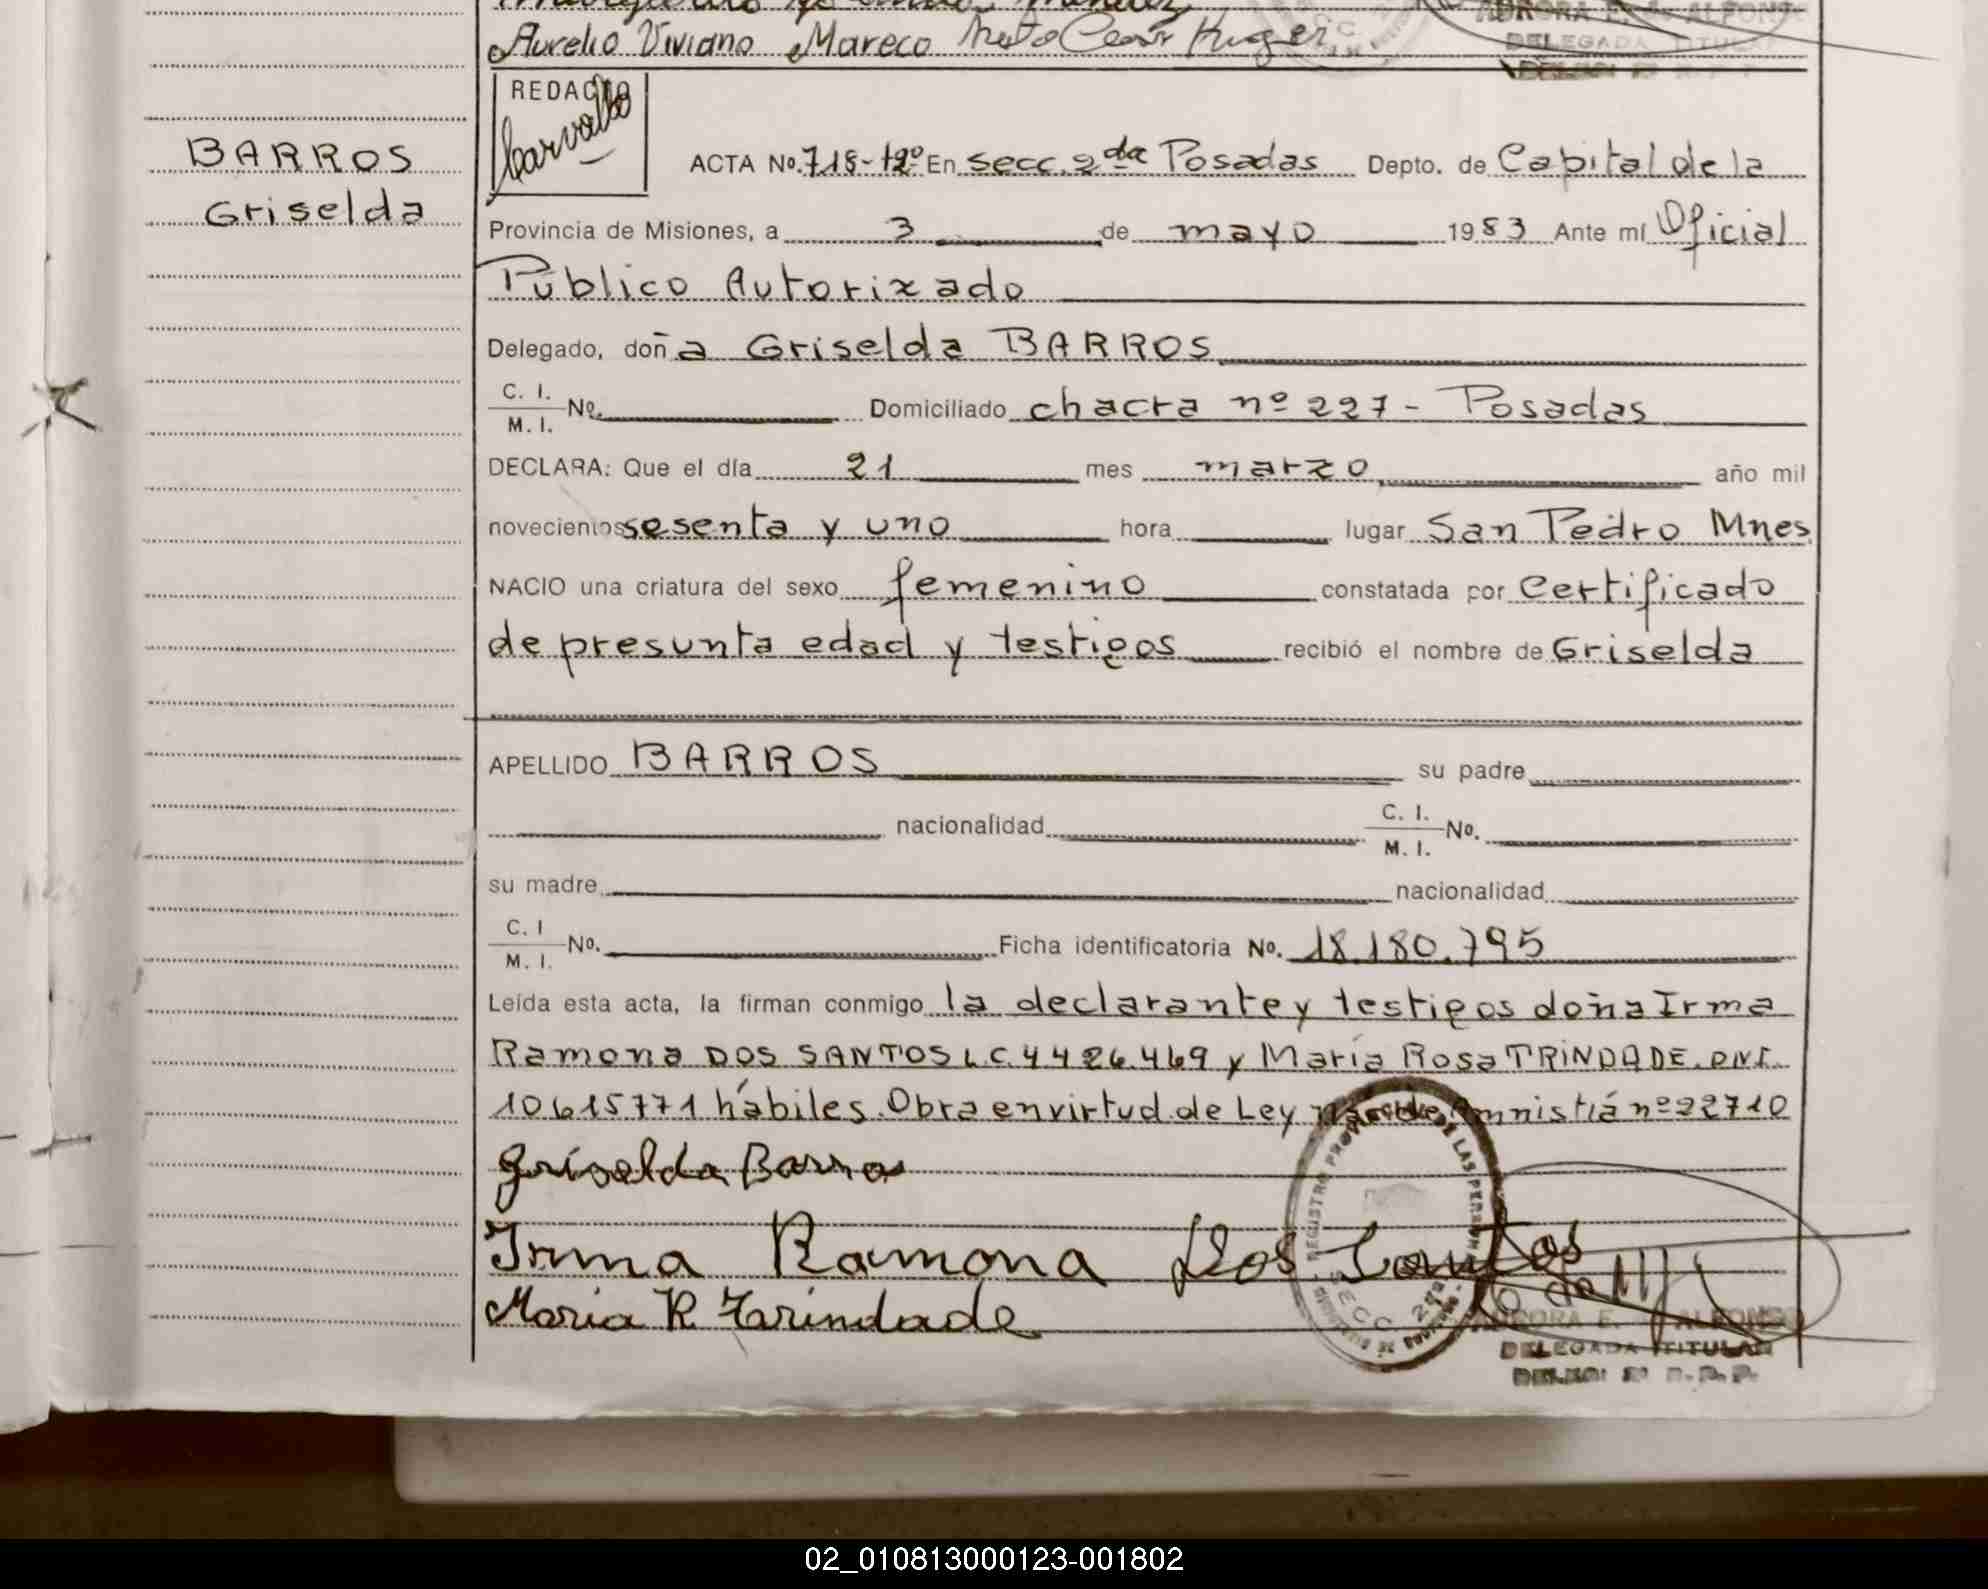 Aurelio Viviano Mareco
AURORA E. de ALFONSO
DELEGADA TITULAR
REDACTO
Carvallo
BARROS
Griselda
ACTA No. 718-12º En secc. 2da Posadas Depto. de Capital de la
Provincia de Misiones, a 3 de mayo 1983 Ante mí Oficial
Público Autorizado
Delegado, doña Griselda BARROS
C. I.
M. I. No. Domiciliado chacra nº 227 - Posadas
DECLARA: Que el día 21 mes marzo año mil
novecientos sesenta y uno hora lugar San Pedro Mnes
NACIO una criatura del sexo femenino constatada por Certificado
de presunta edad y testigos recibió el nombre de Griselda
APELLIDO BARROS su padre
nacionalidad C. I.
M. I. No.
su madre nacionalidad
C. I
M. I. No. Ficha identificatoria No. 18.180.795
Leída esta acta, la firman conmigo la declarante y testigos doña Irma
Ramona DOS SANTOS L.C. 4426.469 y María Rosa TRINDADE. DNI.
10615771 hábiles. Obra en virtud de Ley Amnistiá nº 22710
Griselda Barros
Irma Ramona Dos Santos
Maria R Tarindade
REGISTRO PROV DE LAS PERSONAS
SECC 2da
AURORA E. ALFONSO
DELEGADA TITULAR
02_010813000123-001802